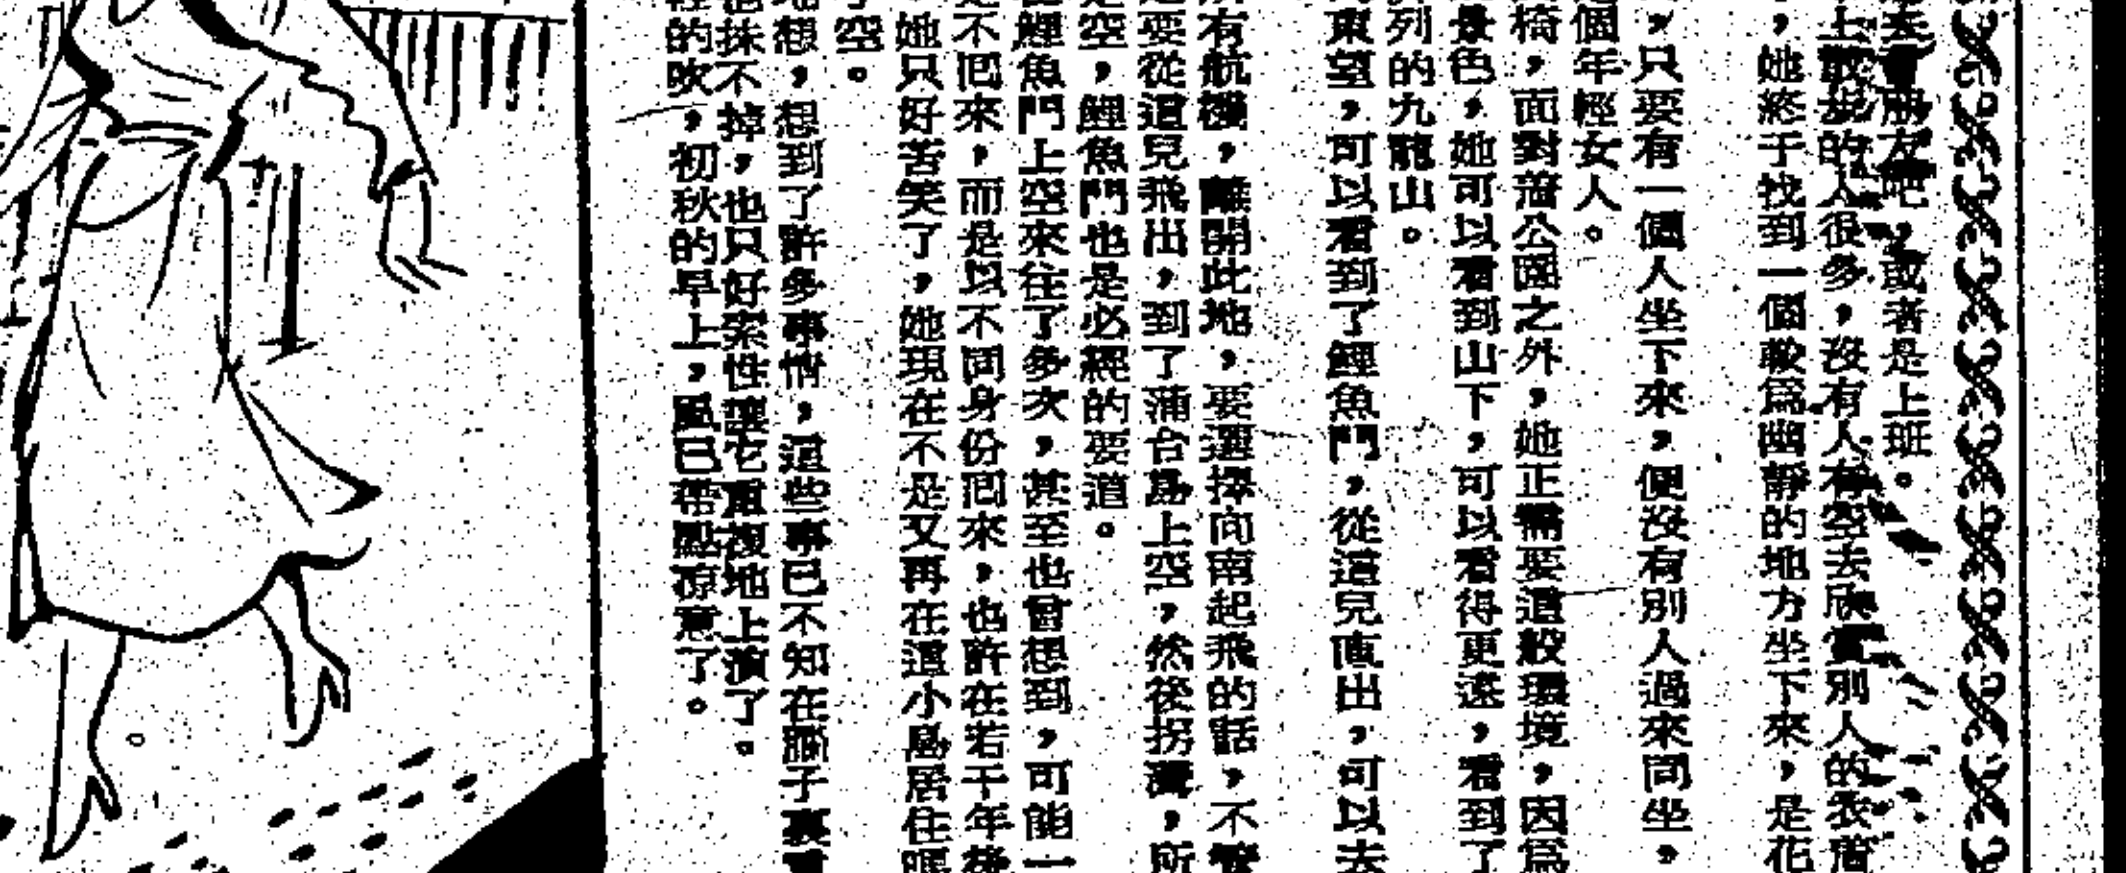 去會朋友吧，或者是上班。
上散步的人很多，沒有人有空去欣賞別人的衣着
，她終于找到一個較爲幽靜的地方坐下來，是花
，只要有一個人坐下來，便沒有別人過來同坐，
個年輕女人。
椅，面對着公園之外，她正需要這般環境，因爲
景色，她可以看到山下，可以看得更遠，看到了
列的九龍山。
東望，可以看到了鯉魚門，從這兒直出，可以去
所有航機，離開此地，要選擇向南起飛的話，不
要從這兒飛出，到了蒲台島上空，然後拐彎，所
空，鯉魚門也是必經的要道。
鯉魚門上空來往了多次，甚至也曾想到，可能一
不囘來，而是以不同身份囘來，也許在若干年後
她只好苦笑了，她現在不是又再在這小島居住
空。
想，想到了許多事情，這些事已不知在腦子裏
抹不掉，也只好索性讓它重複地上演了。
的吹，初秋的早上，風已帶點凉意了。